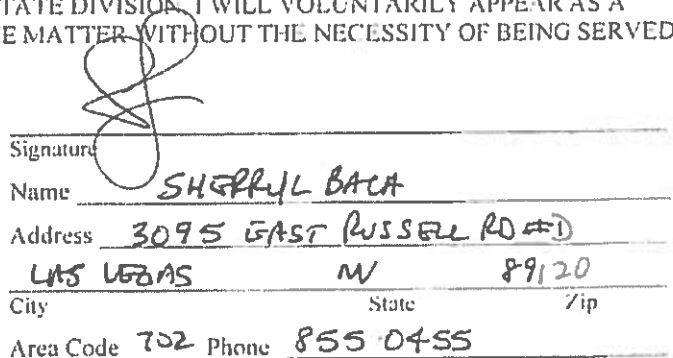 TATE DIVISION, I WILL VOLUNTARILY APPEAR AS A
E MATTER WITHOUT THE NECESSITY OF BEING SERVED
Signature
Name SHERRYL BACA
Address 3095 EAST RUSSELL RD #D
LAS VEGAS NV 89120
City State Zip
Area Code 702 Phone 855 0455